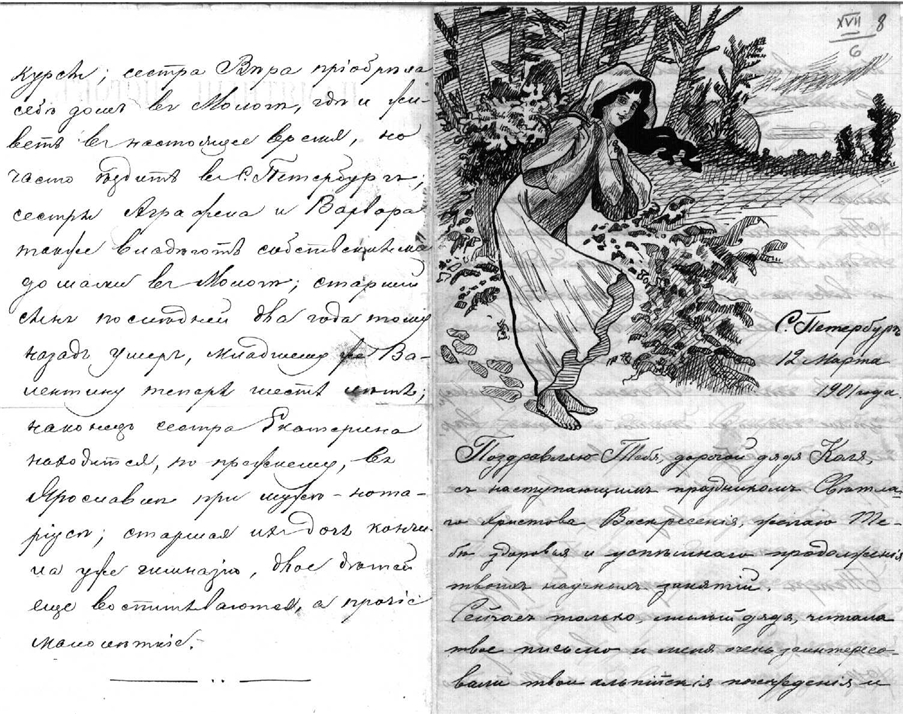 курсѣ; сестра Вѣра пріобрѣла
себѣ домъ въ Мологѣ, гдѣ и жи-
ветъ въ настоящее время, но
часто ѣздитъ въ С. Петербургъ;
сестры Аграфена и Варвара
также владѣютъ собственными
домами въ Мологѣ; старшій
сынъ послѣдней два года тому
назадъ умеръ, младшему же Ва-
лентину теперь шесть лѣтъ;
наконецъ сестра Екатерина
находится, по прежнему, въ
Ярославлѣ при мужѣ-нота-
ріусѣ; старшая ихъ дочь кончи-
ла уже гимназію, двое дѣтей
еще воспитываются, а прочіе
малолѣтніе.
XVII 8
6
С. Петербургъ
12 Марта
1901 года.
Поздравляю Тебя, дорогой дядя Катя,
съ наступающимъ праздникомъ Свѣтла-
го Христова Воскресенія, желаю Те-
бѣ здоровья и успѣшнаго продолженія
твоихъ научныхъ занятій.
Сейчасъ только, милый дядя, читала
твое письмо и меня очень заинтересо-
вали твои альпійскія похожденія и